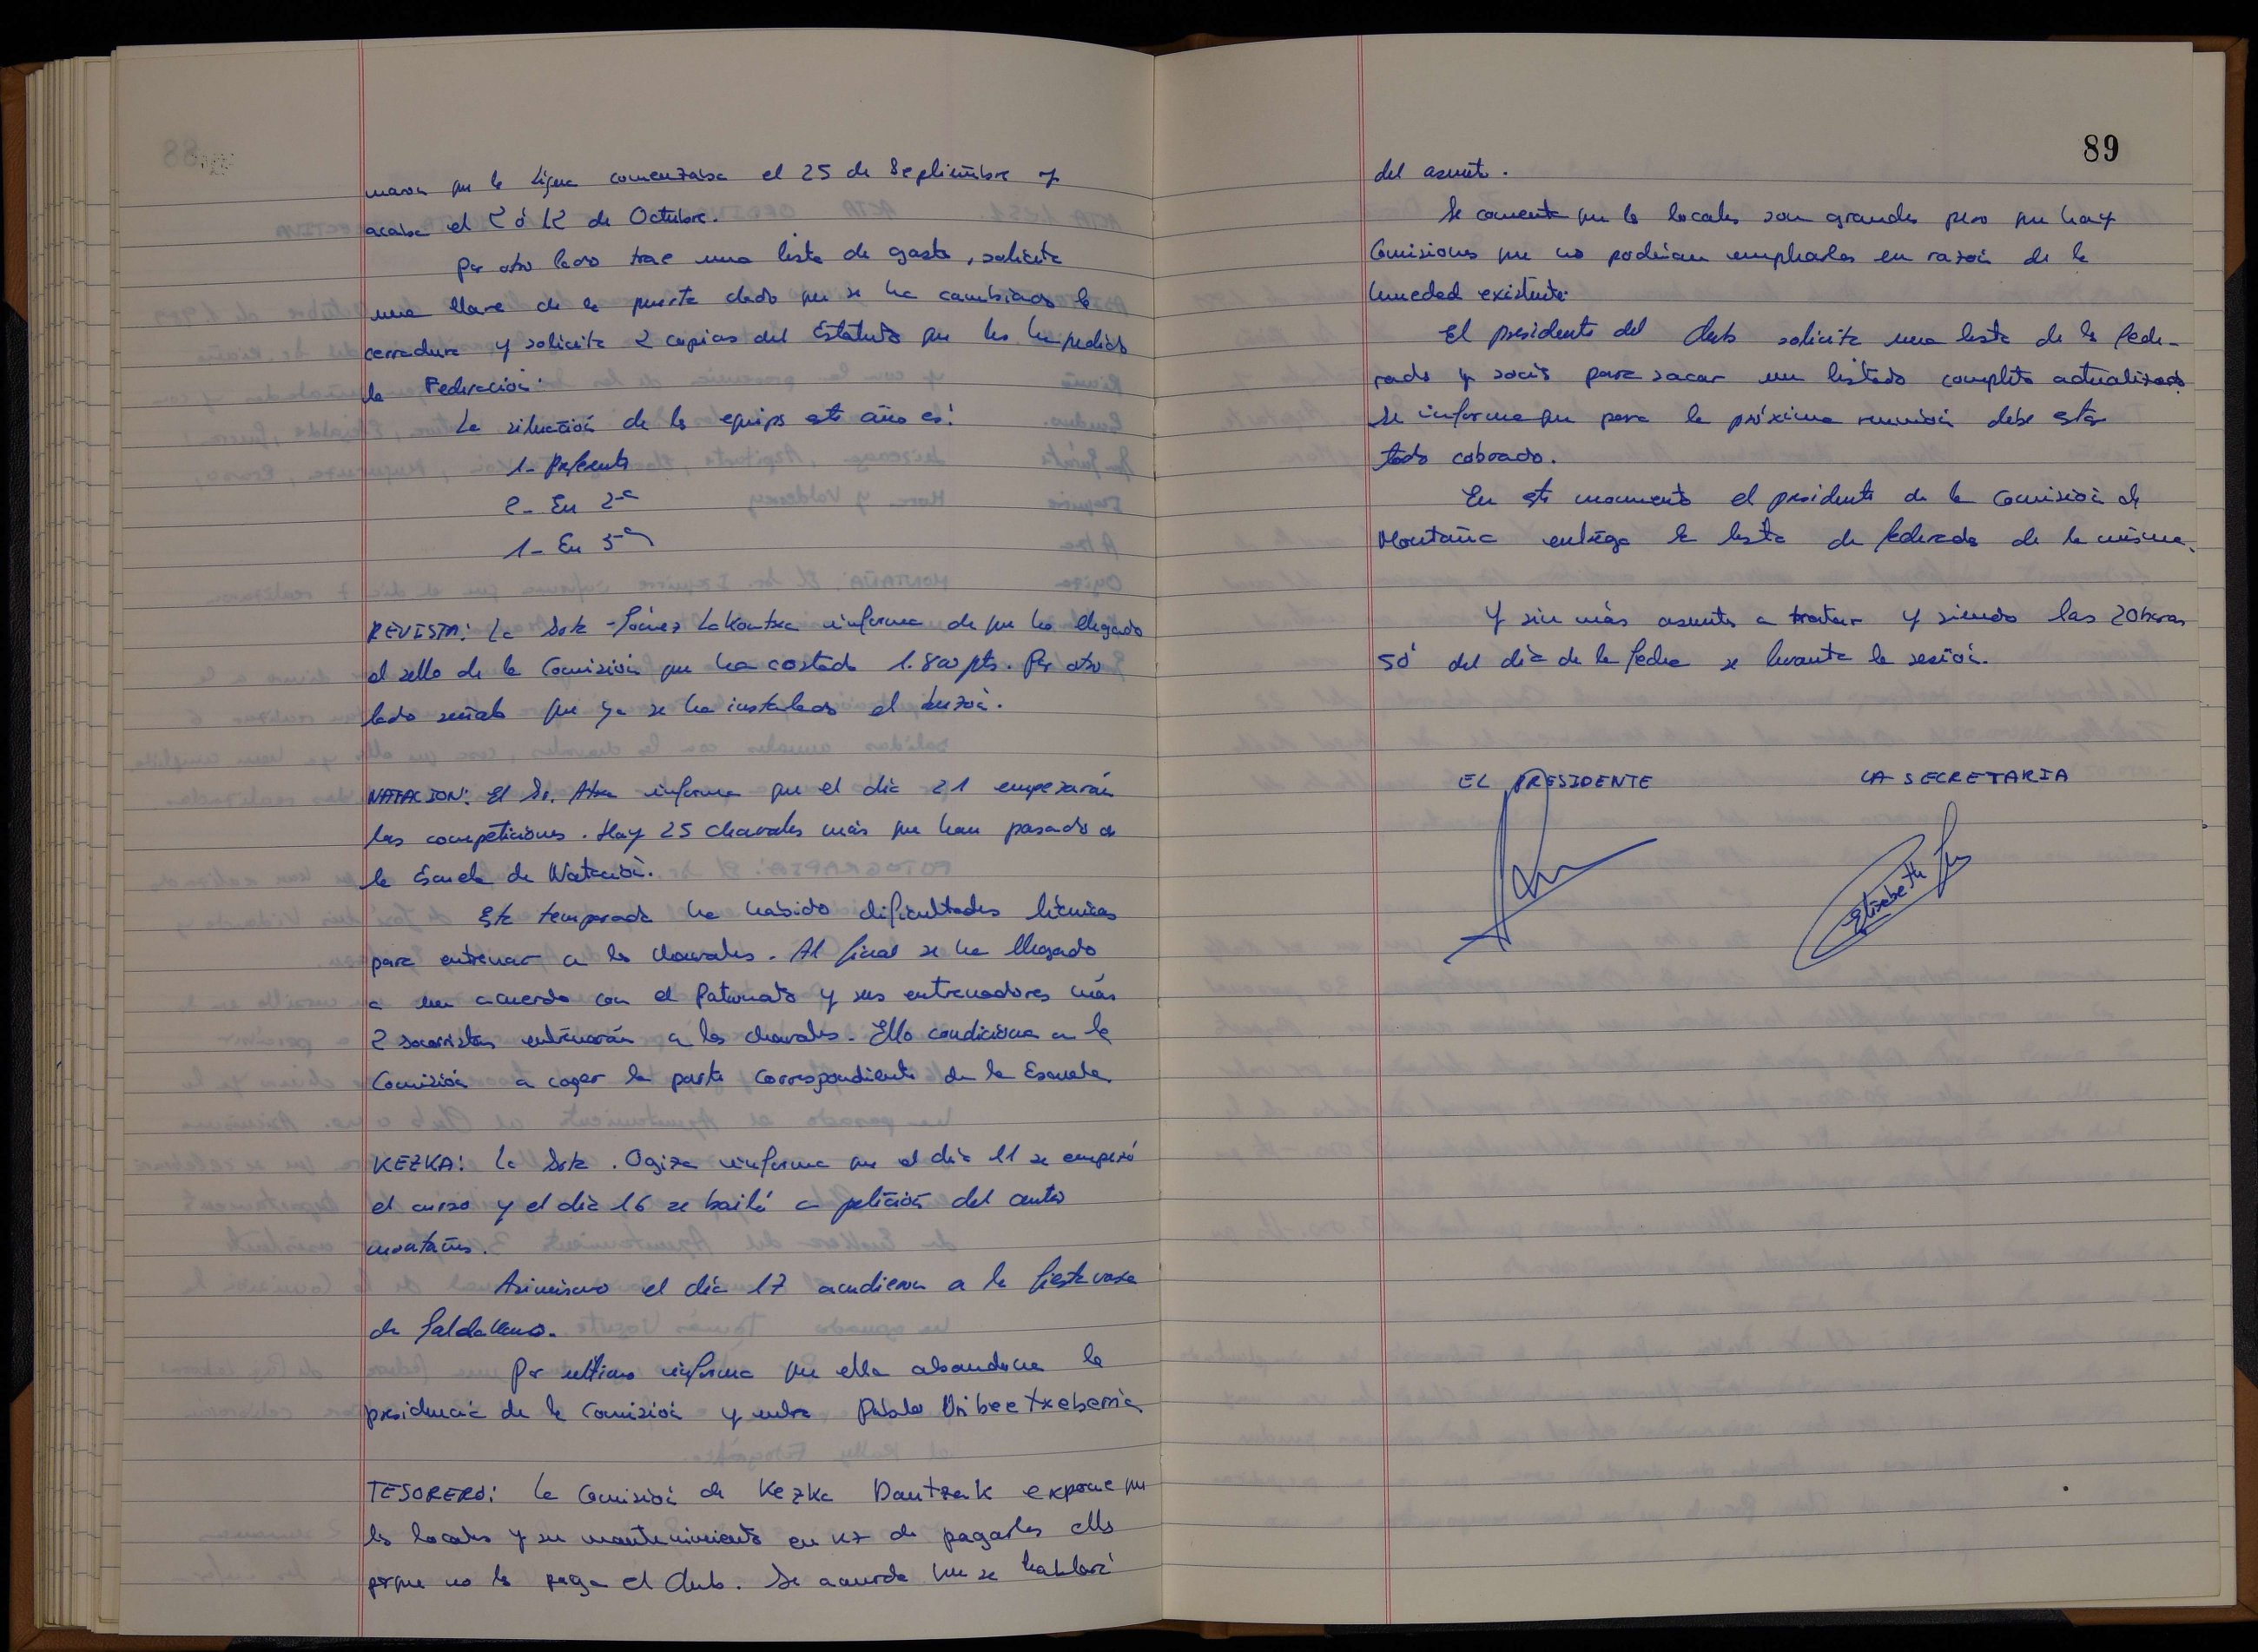 maron que la Liga comenzaba el 25 de Septiembre y
acaba el 2 ó 12 de Octubre.
Por otro lado trae una lista de gastos, solicita
una llave de la puerta dado que se ha cambiado la
cerradura y solicita 2 copias del Estatuto que les ha pedido
la Federación.
La situación de los equipos este año es:
1- Preferente
2- En 2ª
1- En 3ª
REVISTA: La Srta Gómez Lakontxa informa de que ha llegado
el sello de la Comisión que ha costado 1.800 pts. Por otro
lado señala que ya se ha instalado el buzón.
NATACION: El Sr. Atxa informa que el día 21 empezarán
las competiciones. Hay 25 chavales más que han pasado a
la Escuela de Natación.
Esta temporada ha habido dificultades técnicas
para entrenar a los chavales. Al final se ha llegado
a un acuerdo con el Patronato y sus entrenadores más
2 socorristas entrenarán a los chavales. Ello condiciona a la
Comisión a coger la parte correspondiente de la Escuela.
KEZKA: La Srta. Ogiza informa que el día 11 se empezó
el curso y el día 16 se bailó a petición del centro
montañes.
Asimismo el día 17 acudieron a la fiesta vasca
de Galdakano.
Por ultimo informa que ella abandona la
presidencia de la Comisión y entra Pablo Uribeetxeberria
TESORERO: La Comisión de Kezka Dantzak expone que
los locales y su mantenimiento en vez de pagarlos ellos
porque no los paga el Club. Se acuerda que se hablará
89
del asunto.
Se comenta que los locales son grandes pero que hay
Comisiones que no podrian emplearlos en razón de la
humedad existente.
El presidente del Club solicita una lista de los fede-
rados y socios para sacar un listado completo actualizado.
Se informa que para la próxima reunión debe estar
todo cobrado.
En este momento el presidente de la Comisión de
Montaña entrega la lista de federados de la misma.
Y sin más asuntos a tratar y siendo las 20 horas
50' del día de la fecha se levanta la sesión.
EL PRESIDENTE LA SECRETARIA
Elisabeth